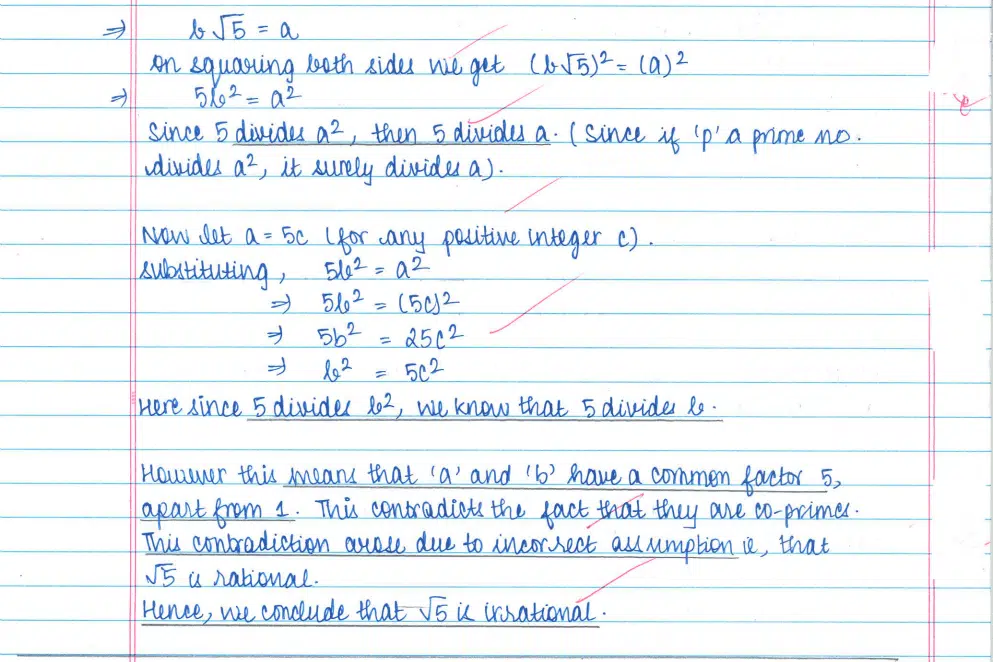 ⇒ b√5 = a
On squaring both sides we get (b√5)² = (a)²
⇒ 5b² = a²
Since 5 divides a², then 5 divides a. (Since if 'p' a prime no.
divides a², it surely divides a).
Now let a = 5c (for any positive integer c).
Substituting, 5b² = a²
⇒ 5b² = (5c)²
⇒ 5b² = 25c²
⇒ b² = 5c²
Here since 5 divides b², we know that 5 divides b.
However this means that 'a' and 'b' have a common factor 5,
apart from 1. This contradicts the fact that they are co-primes.
This contradiction arose due to incorrect assumption ie, that
√5 is rational.
Hence, we conclude that √5 is irrational.